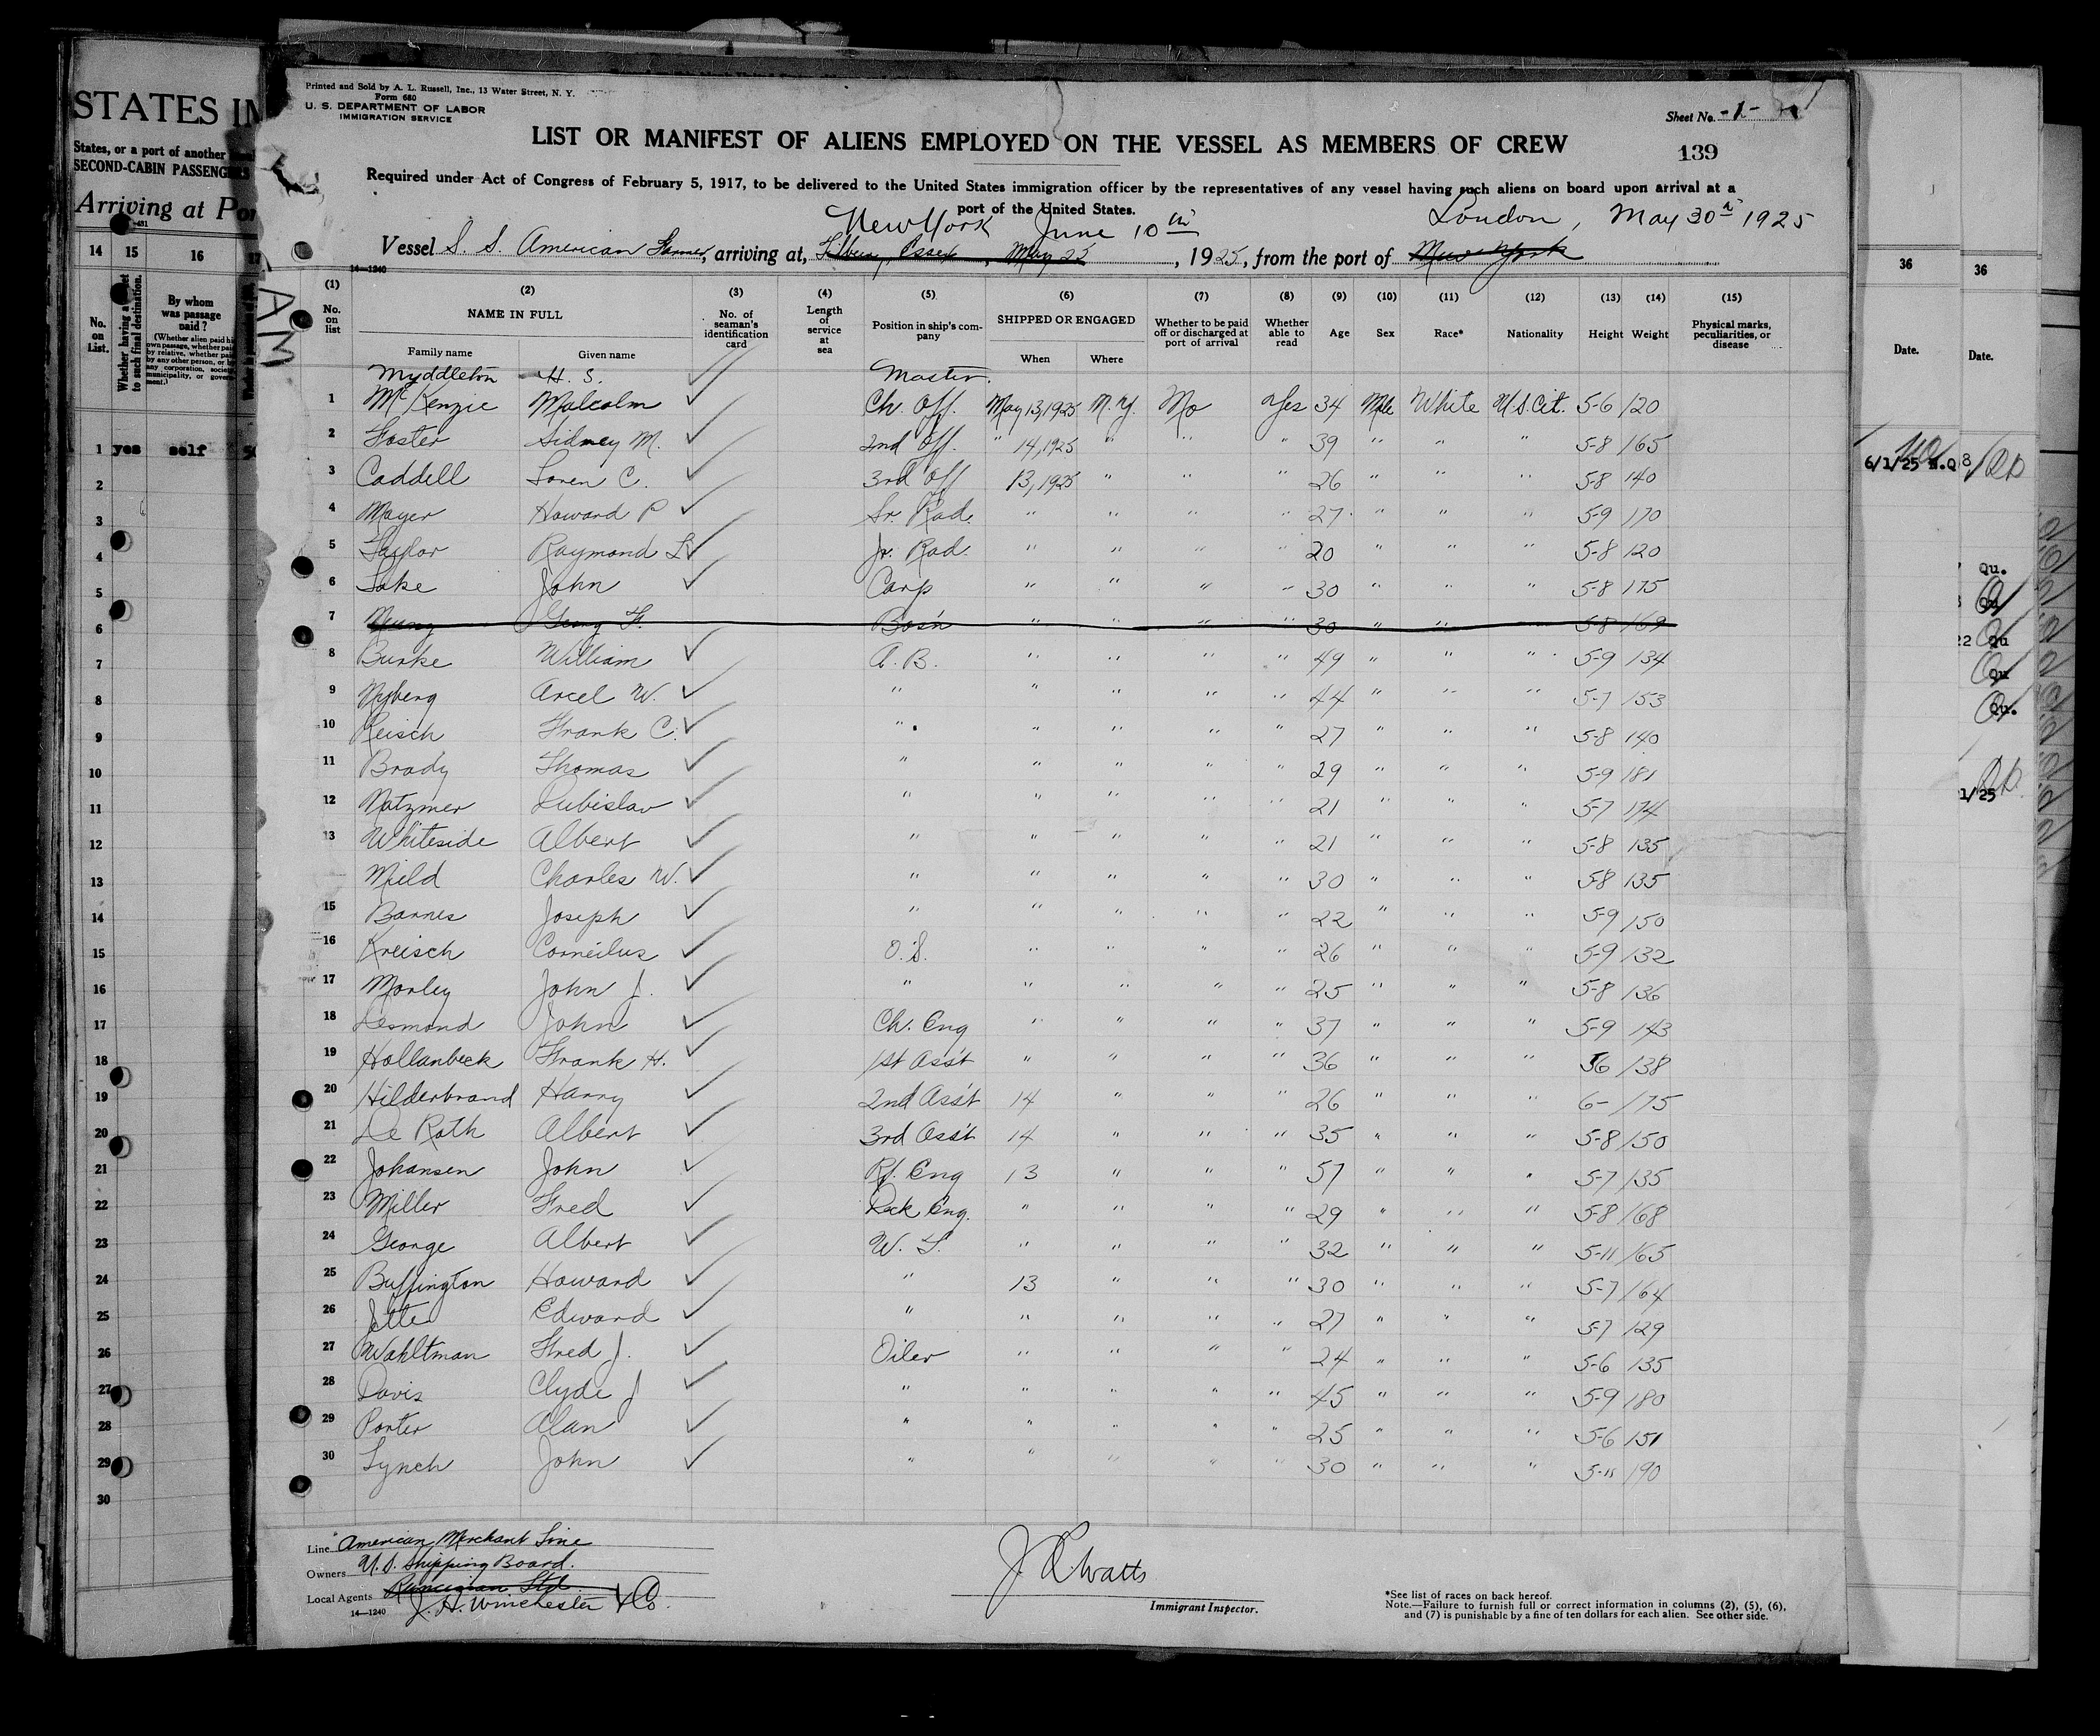 STATES IM
States, or a port of another
SECOND-CABIN PASSENGERS
Arriving at Por
14 15 16 17
No. on List.
Whether having a ticket to such final destination.
By whom was passage paid?
(Whether alien paid his own passage, whether paid by relative, whether paid by any other person, or by any corporation, society, municipality, or government.)
1 yes self 50
2
3
4
5
6
7
8
9
10
11
12
13
14
15
16
17
18
19
20
21
22
23
24
25
26
27
28
29
30
Printed and Sold by A. L. Russell, Inc., 13 Water Street, N. Y.
Form 680
U. S. DEPARTMENT OF LABOR
IMMIGRATION SERVICE
Sheet No. -1-
LIST OR MANIFEST OF ALIENS EMPLOYED ON THE VESSEL AS MEMBERS OF CREW
139
Required under Act of Congress of February 5, 1917, to be delivered to the United States immigration officer by the representatives of any vessel having such aliens on board upon arrival at a
port of the United States.
New York June 10th London, May 30th 1925
Vessel S. S. American Farmer, arriving at, Tilbury, Essex, May 25, 1925, from the port of New York
14—1240
(1) (2) (3) (4) (5) (6) (7) (8) (9) (10) (11) (12) (13) (14) (15)
No. on list
NAME IN FULL
Family name Given name
No. of seaman's identification card
Length of service at sea
Position in ship's company
SHIPPED OR ENGAGED
When Where
Whether to be paid off or discharged at port of arrival
Whether able to read
Age Sex Race* Nationality Height Weight
Physical marks, peculiarities, or disease
Myddleton H. S. ✓ Master.
1 McKenzie Malcolm ✓ Ch. Off. May 13, 1925 N.Y. No Yes 34 Male White U.S. Cit. 5-6 120
2 Foster Sidney M. ✓ 2nd Off. " 14, 1925 " " " 39 " " " 5-8 165
3 Caddell Loren C. ✓ 3rd Off 13, 1925 " " 26 " " 5-8 140
4 Mayer Howard P ✓ Sr. Rad. " " " " 27 " " " 5-9 170
5 Taylor Raymond L ✓ Jr. Rad. " " " " 20 " " " 5-8 120
6 Lake John ✓ Carp " " " " 30 " " " 5-8 175
7 Young Georg F. Bos'n " " " " 30 " " 5-8 169
8 Burke William ✓ A. B. " " " " 49 " " " 5-9 134
9 Nyberg Arcel W. ✓ " " " " " 44 " " " 5-7 153
10 Reisch Frank C. ✓ " " " " " 27 " " " 5-8 140
11 Brady Thomas ✓ " " " " " 29 " " " 5-9 181
12 Natzmer Lubislav ✓ " " " " " 21 " " " 5-7 174
13 Whiteside Albert ✓ " " " " " 21 " " " 5-8 135
Mield Charles W. ✓ " " " " " 30 " " " 5-8 135
15 Barnes Joseph ✓ " " " " " 22 " " " 5-9 150
16 Kreisch Corneilus ✓ O.S. " " " " 26 " " " 5-9 132
17 Morley John J. ✓ " " " " " 25 " " " 5-8 136
18 Desmond John ✓ Ch. Eng " " " " 37 " " " 5-9 143
19 Hollanbeck Frank H. ✓ 1st Ass't " " " " 36 " " " 56 138
20 Hilderbrand Harry ✓ 2nd Ass't 14 " " " 26 " " " 6- 175
21 De Roth Albert ✓ 3rd Ass't 14 " " " 35 " " " 5-8 150
22 Johansen John ✓ Rf. Eng 13 " " " 57 " " " 5-7 135
23 Miller Fred ✓ Deck Eng. " " " " 29 " " " 5-8 168
24 George Albert ✓ W. T. " " " " 32 " " " 5-11 165
25 Buffington Howard ✓ " 13 " " " 30 " " " 5-7 164
26 Jette Edward ✓ " " " " " 27 " " " 5-7 129
27 Wahltman Fred J. ✓ Oiler " " " " 24 " " " 5-6 135
28 Davis Clyde J ✓ " " " " " 45 " " " 5-9 180
29 Porter Alan ✓ " " " " " 25 " " " 5-6 151
30 Lynch John ✓ " " " " " 30 " " " 5-11 190
Line American Merchant Line
Owners U.S. Shipping Board.
Local Agents Runciman Ltd.
J. H. Winchester & Co.
14—1240
J. R. Watts
Immigrant Inspector.
*See list of races on back hereof.
Note.—Failure to furnish full or correct information in columns (2), (5), (6),
and (7) is punishable by a fine of ten dollars for each alien. See other side.
36 36
Date. Date.
6/1/25 8
Qu.
Qu
22 Qu
Qu
Qu.
1/25